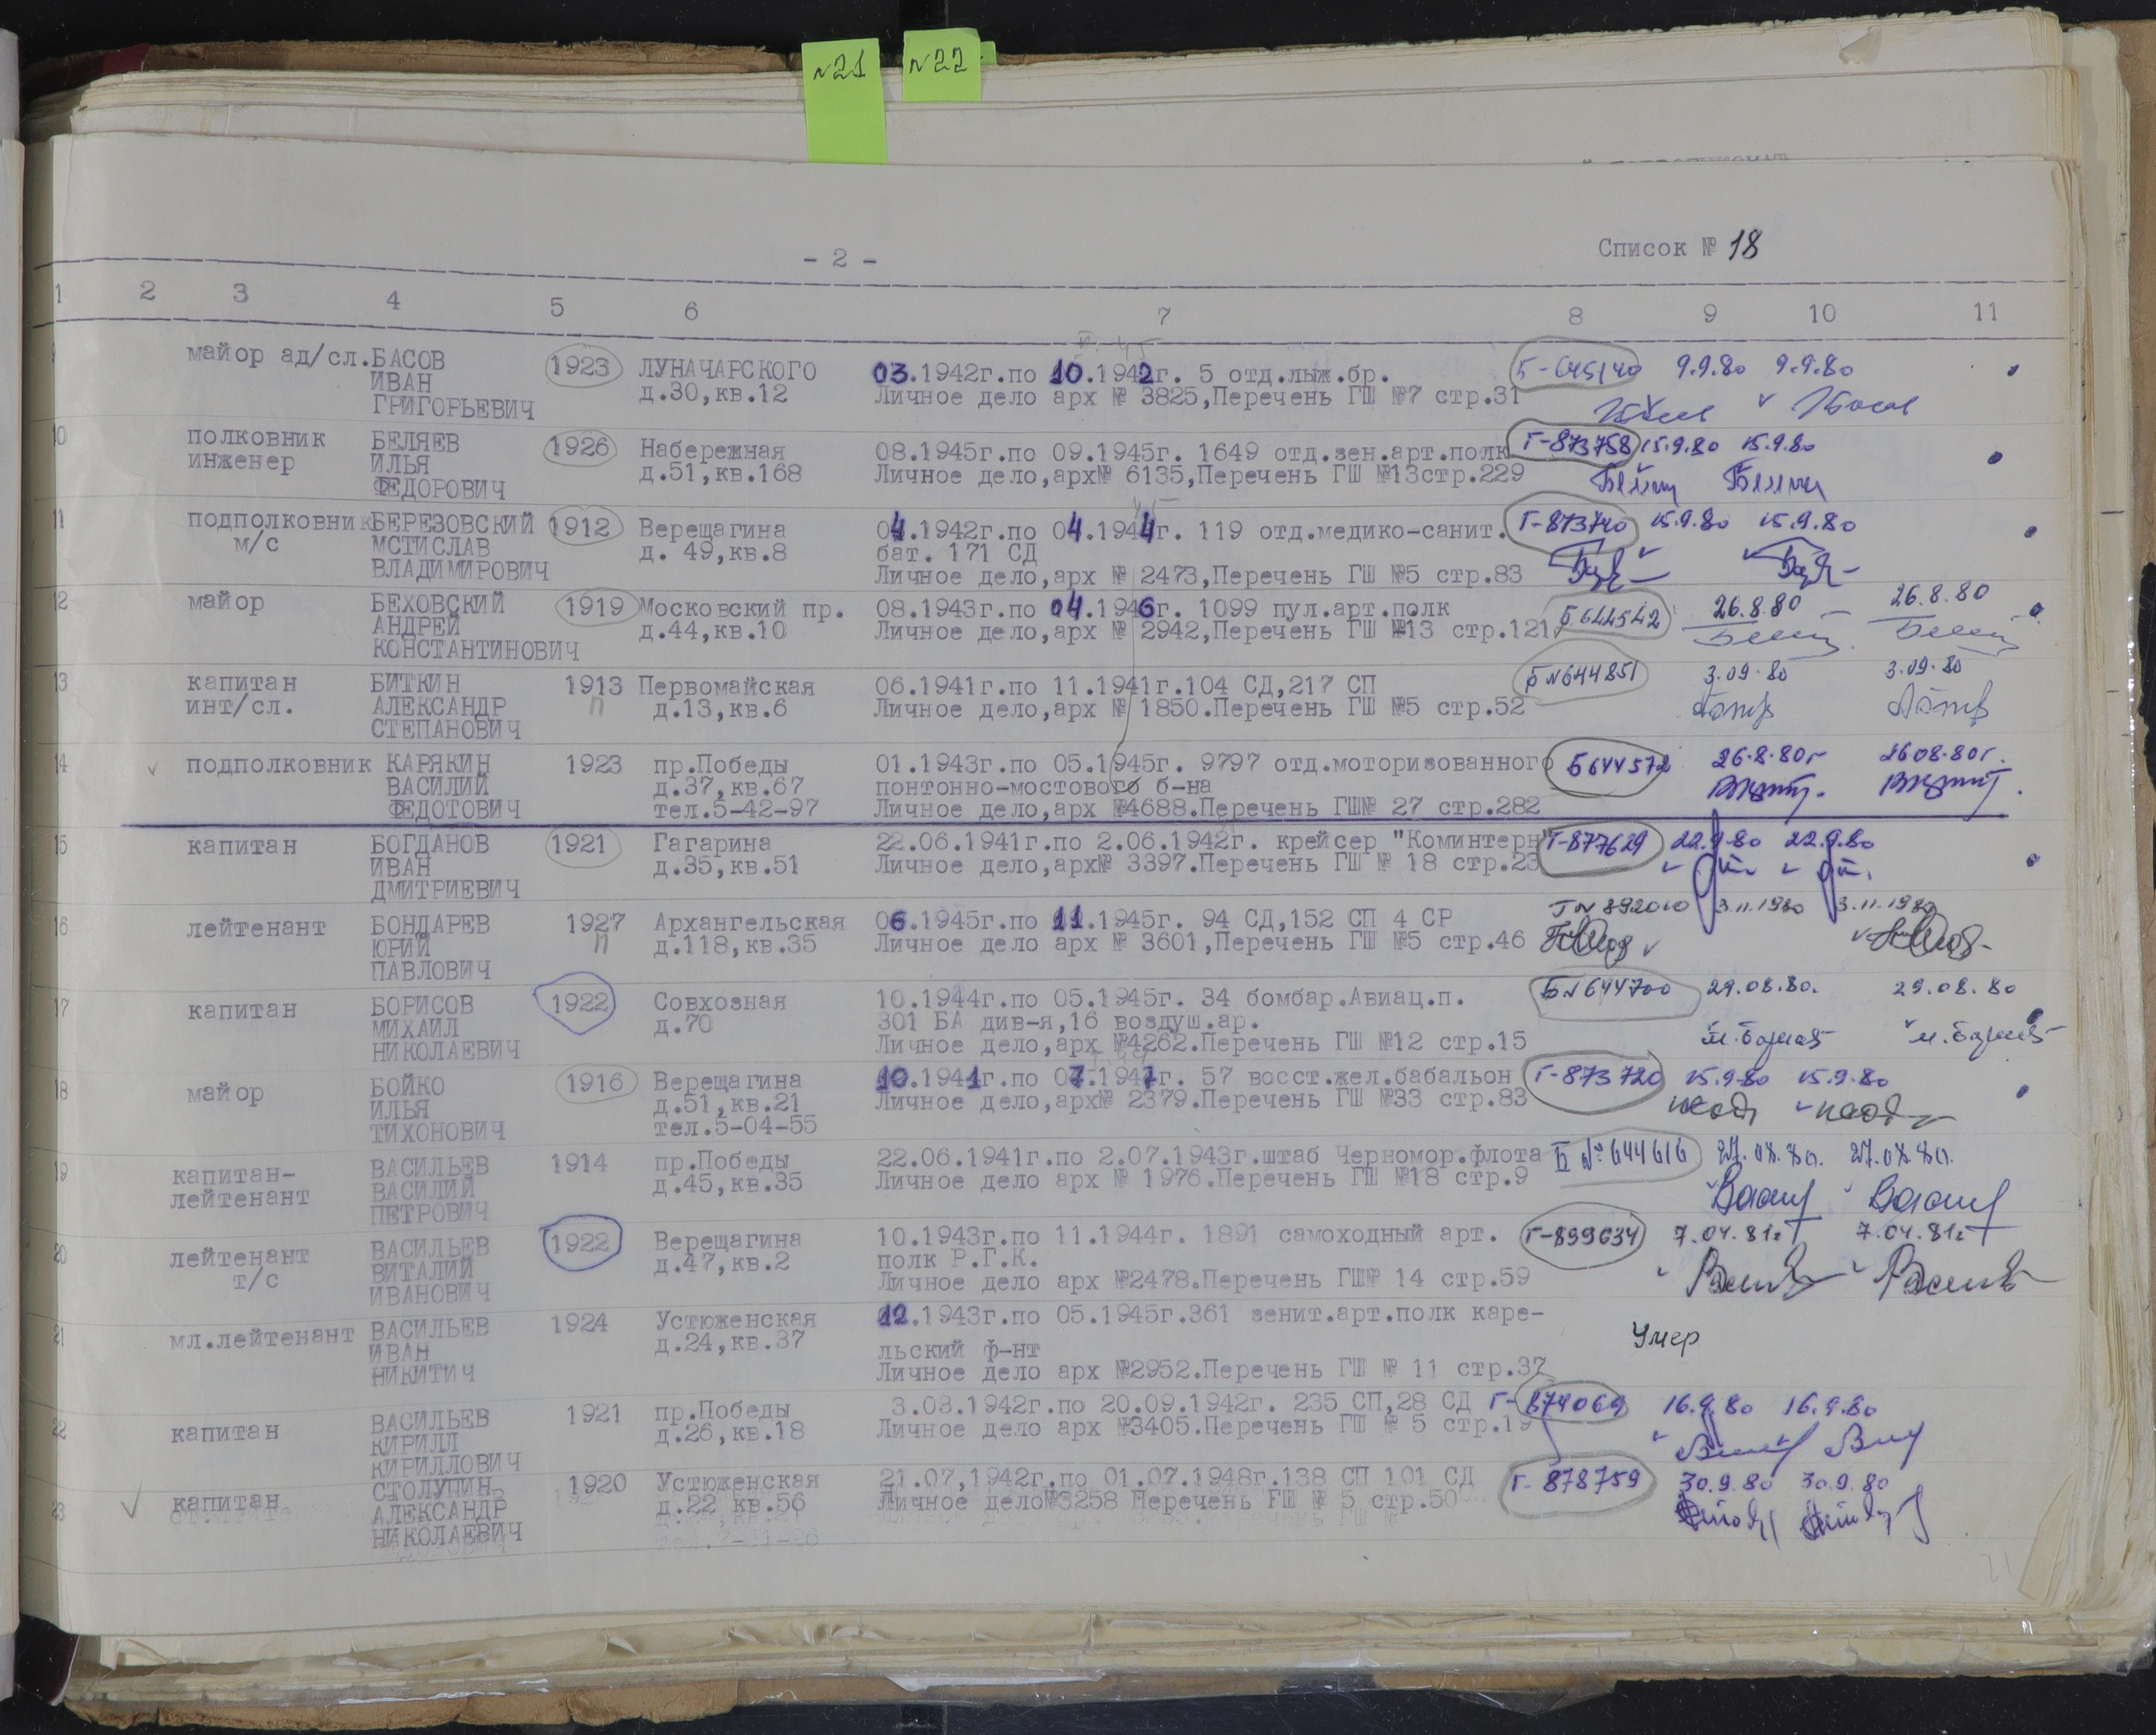 N21 N22
- 2 -
Список № 18
1 2 3 4 5 6 7 8 9 10 11
9 майор ад/сл. БАСОВ 1923 ЛУНАЧАРСКОГО 03.1942г.по 10.1942г. 5 отд.лыж.бр. Б-645140 9.9.80 9.9.80
ИВАН д.30,кв.12 Личное дело арх № 3825,Перечень ГШ №7 стр.31
ГРИГОРЬЕВИЧ
10 полковник БЕЛЯЕВ 1926 Набережная 08.1945г.по 09.1945г. 1649 отд.зен.арт.полк Г-873758 15.9.80 15.9.80
инженер ИЛЬЯ д.51,кв.168 Личное дело,арх№ 6135,Перечень ГШ №13стр.229
ФЕДОРОВИЧ
11 подполковник БЕРЕЗОВСКИЙ 1912 Верещагина 04.1942г.по 04.1944г. 119 отд.медико-санит. Г-873740 15.9.80 15.9.80
м/с МСТИСЛАВ д. 49,кв.8 бат. 171 СД
ВЛАДИМИРОВИЧ Личное дело,арх № 2473,Перечень ГШ №5 стр.83
12 майор БЕХОВСКИЙ 1919 Московский пр. 08.1943г.по 04.1946г. 1099 пул.арт.полк Б644542 26.8.80 26.8.80
АНДРЕЙ д.44,кв.10 Личное дело,арх № 2942,Перечень ГШ №13 стр.121
КОНСТАНТИНОВИЧ
13 капитан БИТКИН 1913 Первомайская 06.1941г.по 11.1941г.104 СД,217 СП Б N644851 3.09.80 3.09.80
инт/сл. АЛЕКСАНДР п д.13,кв.6 Личное дело,арх № 1850.Перечень ГШ №5 стр.52
СТЕПАНОВИЧ
14 подполковник КАРЯКИН 1923 пр.Победы 01.1943г.по 05.1945г. 9797 отд.моторизованного Б644572 26.8.80г 26 08.80г.
ВАСИЛИЙ д.37,кв.67 понтонно-мостового б-на
ФЕДОТОВИЧ тел.5-42-97 Личное дело,арх №4688.Перечень ГШ№ 27 стр.282
15 капитан БОГДАНОВ 1921 Гагарина 22.06.1941г.по 2.06.1942г. крейсер "Коминтерн" Г-877629 22.9.80 22.9.80
ИВАН д.35,кв.51 Личное дело,арх№ 3397.Перечень ГШ № 18 стр.23
ДМИТРИЕВИЧ
16 лейтенант БОНДАРЕВ 1927 Архангельская 06.1945г.по 11.1945г. 94 СД,152 СП 4 СР Г N 892010 3.11.1980 3.11.1980
ЮРИЙ п д.118,кв.35 Личное дело арх № 3601,Перечень ГШ №5 стр.46
ПАВЛОВИЧ
17 капитан БОРИСОВ 1922 Совхозная 10.1944г.по 05.1945г. 34 бомбар.Авиац.п. Б N644700 29.08.80. 29.08.80
МИХАИЛ д.70 301 БА див-я,16 воздуш.ар.
НИКОЛАЕВИЧ Личное дело,арх №4262.Перечень ГШ №12 стр.15
18 майор БОЙКО 1916 Верещагина 10.1941г.по 07.1947г. 57 восст.жел.бабальон Г-873720 15.9.80 15.9.80
ИЛЬЯ д.51,кв.21 Личное дело,арх№ 2379.Перечень ГШ №33 стр.83
ТИХОНОВИЧ тел.5-04-55
19 капитан- ВАСИЛЬЕВ 1914 пр.Победы 22.06.1941г.по 2.07.1943г.штаб Черномор.флота Б №644616 27.08.80. 27.08.80.
лейтенант ВАСИЛИЙ д.45,кв.35 Личное дело арх № 1976.Перечень ГШ №18 стр.9
ПЕТРОВИЧ
20 лейтенант ВАСИЛЬЕВ 1922 Верещагина 10.1943г.по 11.1944г. 1891 самоходный арт. Г-899634 7.04.81г 7.04.81г
т/с ВИТАЛИЙ д.47,кв.2 полк Р.Г.К.
ИВАНОВИЧ Личное дело арх №2478.Перечень ГШ№ 14 стр.59
21 мл.лейтенант ВАСИЛЬЕВ 1924 Устюженская 12.1943г.по 05.1945г.361 зенит.арт.полк каре- Умер
ИВАН д.24,кв.37 льский ф-нт
НИКИТИЧ Личное дело арх №2952.Перечень ГШ № 11 стр.37
22 капитан ВАСИЛЬЕВ 1921 пр.Победы 3.03.1942г.по 20.09.1942г. 235 СП,28 СД Г-874069 16.9.80 16.9.80
КИРИЛЛ д.26,кв.18 Личное дело арх №3405.Перечень ГШ № 5 стр.19
КИРИЛЛОВИЧ
23 капитан СТОЛУПИН 1920 Устюженская 21.07,1942г.по 01.07.1948г.138 СП 101 СД Г-878759 30.9.80 30.9.80
АЛЕКСАНДР д.22 кв.56 Личное дело№3258 Перечень ГШ № 5 стр.50
НИКОЛАЕВИЧ